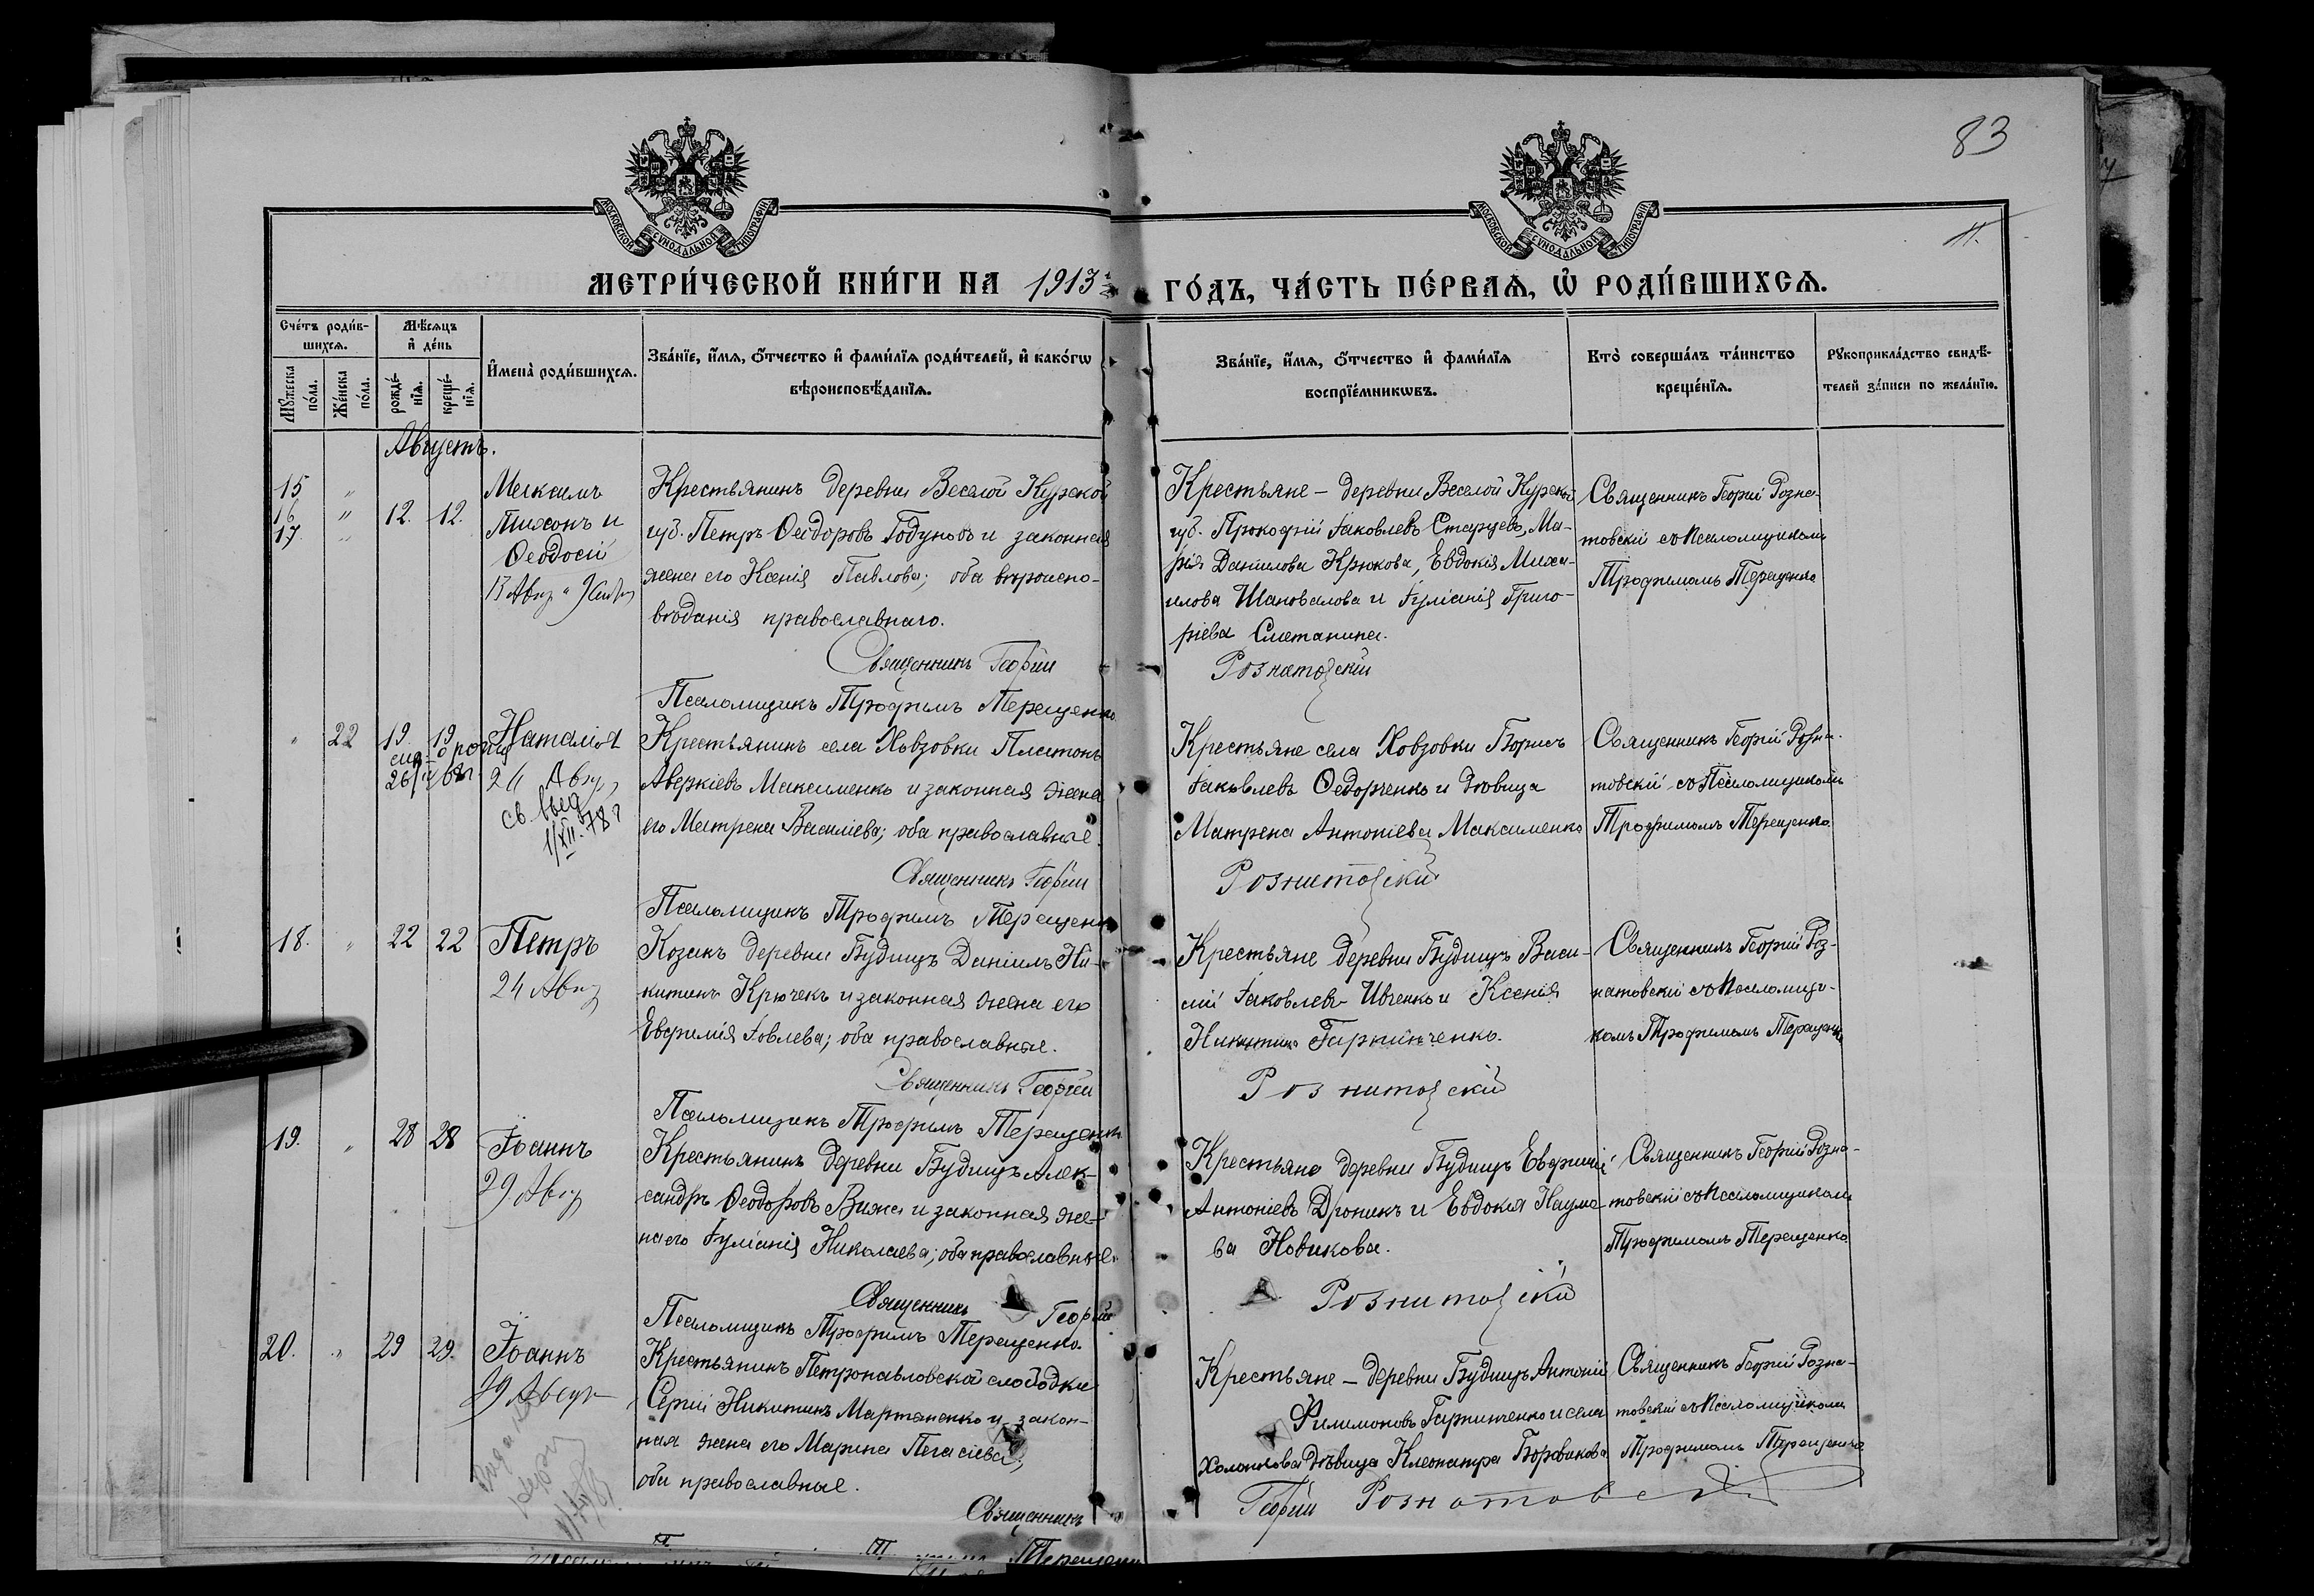 83
11.
МОСКОВСКОЙ СѴНОДАЛЬНОЙ ТИПОГРАФІИ
МОСКОВСКОЙ СѴНОДАЛЬНОЙ ТИПОГРАФІИ
МЕТРИ́ЧЕСКОЙ КНИ́ГИ НА 1913 ГО́ДЪ, ЧА́СТЬ ПЕ́РВАѦ, Ѡ҆ РОДИ́ВШИХСѦ.
Сче́тъ роди́в-
шихсѧ.
Мꙋ́жеска по́ла.
Же́нска по́ла.
Мѣ́сѧцъ
и҆ де́нь
рожде́-
нїѧ.
креще́-
нїѧ.
И҆мена̀ роди́вшихсѧ.
Зва́нїе, и҆́мѧ, ѻ҆́тчество и҆ фами́лїѧ роди́телей, и҆ како́гѡ
вѣроисповѣ́данїѧ.
Зва́нїе, и҆́мѧ, ѻ҆́тчество и҆ фами́лїѧ
воспрїе́мникѡвъ.
Кто̀ соверша́лъ та́инство
креще́нїѧ.
Рꙋкоприкла́дство свидѣ́-
телей за́писи по жела́нїю.
Августъ.
15 " Максимъ
16 " 12. 12. Тихонъ и
17. " Ѳеодосій
13 Авг
Крестьянинъ деревни Веселой Курской
губ. Петръ Ѳеодоровъ Годуновъ и законная
жена его Ксенія Павлова; оба вѣроиспо-
вѣданія православнаго.
Священникъ Георгій
Псаломщикъ Трофимъ Терещенко
Крестьяне - деревни Веселой Курской
губ. Прокофій Іаковлевъ Старцевъ, Ма-
рія Даніилова Крюкова, Евдокія Миха-
илова Шаповалова и Іуліанія Григо-
ріева Сметанина.
Рознатовскій
Священникъ Георгій Розна-
товскій съ Псаломщикомъ
Трофимомъ Терещенко
" 22 19 19 Наталія
24 Авг
св. выд
1/XII.78г
Крестьянинъ села Ховзовки Платонъ
Аверкіевъ Максименко и законная жена
его Матрена Василіева; оба православные.
Священникъ Георгій
Псаломщикъ Трофимъ Терещенко
Крестьяне села Ховзовки Борисъ
Іаковлевъ Ѳедорченко и дѣвица
Матрена Антоніева Максименко
Рознатовскій
Священникъ Георгій Розна-
товскій съ Псаломщикомъ
Трофимомъ Терещенко.
18. " 22 22 Петръ
24 Авг
Козакъ деревни Будищъ Даніилъ Ни-
китинъ Крючекъ и законная жена его
Евфимія Іовлева; оба православные.
Священникъ Георгій
Псаломщикъ Трофимъ Терещенко
Крестьяне деревни Будищъ Васи-
лій Іаковлевъ Ивченко и Ксенія
Никитина Гарпинченко.
Рознатовскій
Священникъ Георгій Роз-
натовскій съ Псаломщи-
комъ Трофимомъ Терещенко
19. " 28 28 Іоаннъ
29 Авг
Крестьянинъ деревни Будищъ Алек-
сандръ Ѳеодоровъ Вижа и законная же-
на его Іуліанія Николаева; оба православные.
Священникъ Георгій
Псаломщикъ Трофимъ Терещенко.
Крестьяне деревни Будищъ Евфимій
Антоніевъ Дроникъ и Евдокія Наумо-
ва Новикова.
Розна товскій
Священникъ Георгій Розна-
товскій съ Псаломщикомъ
Трофимомъ Терещенко
20. " 29 29. Іоаннъ
29 Август
Крестьянинъ Петропавловской слободки
Сергій Никитинъ Мартыненко и закон-
ная жена его Марина Пегасіева;
оба православные.
Священникъ
Крестьяне - деревни Будищъ Антоній
Филимоновъ Гарпинченко и села
Холопкова дѣвица Клеопатра Боровикова
Георгій Рознатовскій
Священникъ Георгій Розна-
товскій съ Псаломщикомъ
Трофимомъ Терещенко
Терещенко